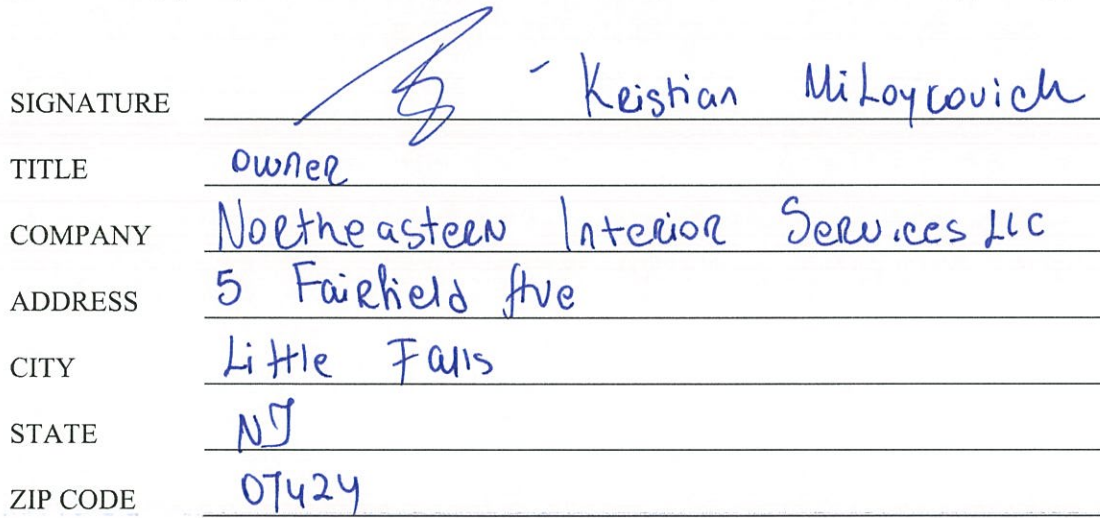 SIGNATURE - Kristian Miloycovich
TITLE owner
COMPANY Northeastern Interior Services LLC
ADDRESS 5 Fairfield Ave
CITY Little Falls
STATE NJ
ZIP CODE 07424